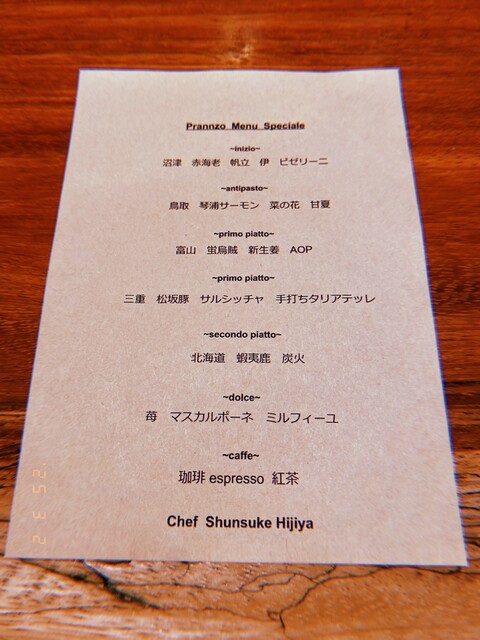 Prannzo Menu Speciale
~inizio~
沼津 赤海老 帆立 伊 ピゼリーニ
~antipasto~
鳥取 琴浦サーモン 菜の花 甘夏
~primo piatto~
富山 蛍烏賊 新生姜 AOP
~primo piatto~
三重 松坂豚 サルシッチャ 手打ちタリアテッレ
~secondo piatto~
北海道 蝦夷鹿 炭火
~dolce~
苺 マスカルポーネ ミルフィーユ
~caffe~
珈琲 espresso 紅茶
Chef Shunsuke Hijiya
'25 3 2